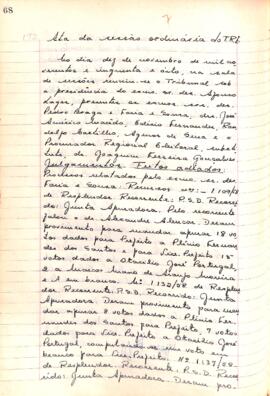 68
Ata da sessão ordinária do TRE.
No dia dez de novembro de mil no-
vecentos e cinquenta e oito, na sala
de sessões reuniu-se o Tribunal sob
a presidência do exmo. sr. des. Afonso
Lages, presentes os exmos. srs. des.
Pedro Braga e Faria e Sousa, drs. José
Américo Macêdo, Edésio Fernandes,
e o
Procurador Regional Eleitoral, substi-
tuto, dr. Joaquim Ferreira Gonçalves.
Julgamentos: Feitos adiados:
Processos relatados pelo exmo. sr. des.
Faria e Sousa: Recursos nºs: 1130/58
de Resplendor. Recorrente: P.S.D. Recor-
rido: Junta Apuradora. Pelo
e de Alexandre Alencar. Deram
provimento para mandar apurar 18 vo-
tos dados para Prefeito a Plínio Fernan-
des dos Santos e para Vice-Prefeito 15
votos dados a Otacílio José Portugal,
2 a Marcos Mano de Araujo Moreira
e 1 em branco. Nº 1.132/58 de Resplen-
dor. Recorrente: P.S.D. Recorrido: Junta
Apuradora. Deram provimento para man-
dar apurar 8 votos dados a Plínio Fer-
nandes dos Santos para Prefeito, 7 votos
dados para Vice-Prefeito a Otacílio José
Portugal, um voto em
branco para Vice-Prefeito. Nº 1.137/58
de Resplendor. Recorrente: P.S.D. Recor-
rido: Junta Apuradora. Deram pro-